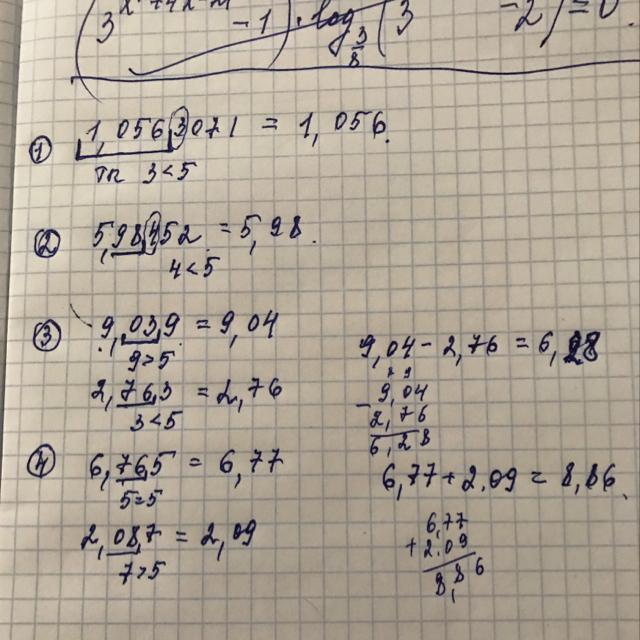 3 - 1) · log 3/8 (3 - 2) = 0
① 1,0563071 = 1,056.
тк 3<5
② 5,98452 = 5,98.
4<5
③ 9,039 = 9,04
9>5
2,763 = 2,76
3<5
9,04 - 2,76 = 6,28
9,04
- 2,76
6,28
④ 6,765 = 6,77
5=5
2,087 = 2,09
7>5
6,77 + 2.09 = 8,86.
6,77
+ 2.09
8,86